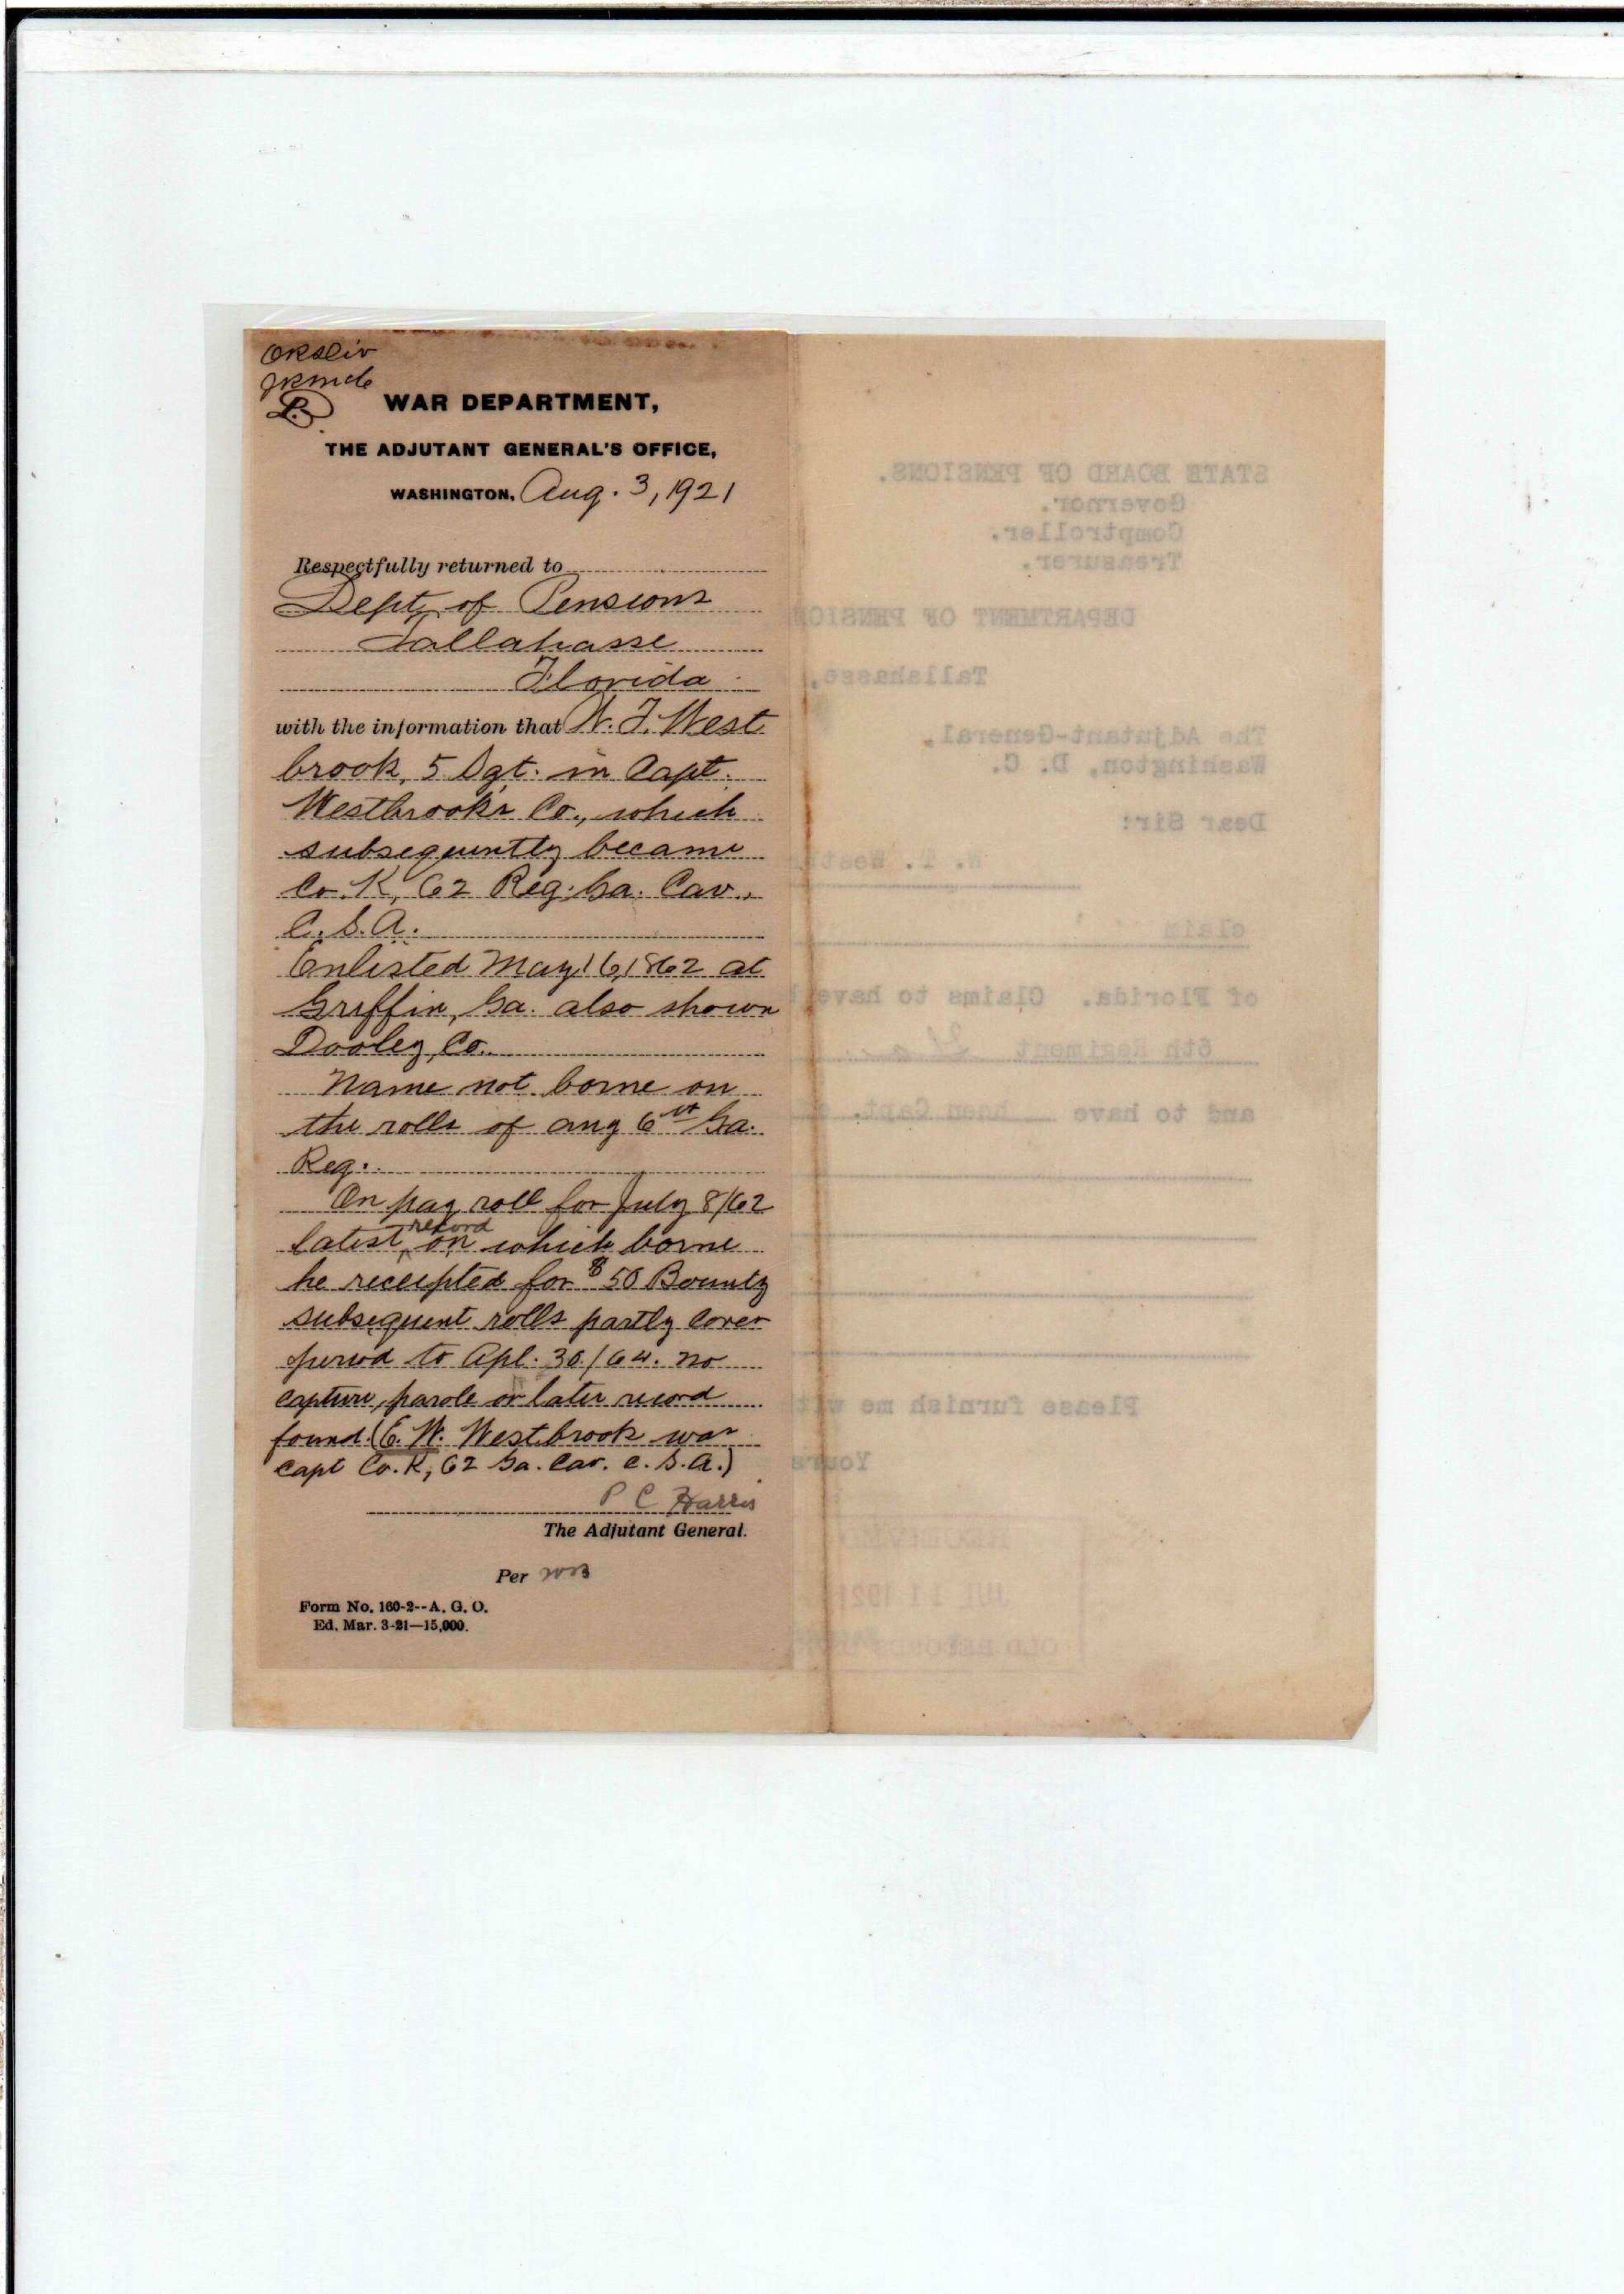 WAR DEPARTMENT,
THE ADJUTANT GENERAL'S OFFICE,
WASHINGTON, Aug. 3, 1921
Respectfully returned to
Dept. of Pensions
Tallahasse
Florida
with the information that W. T. West
brook, 5 Sgt. in Capt.
Westbrook's Co., which
subsequently became
Co. K, 62 Reg. Ga. Cav.,
C.S.A.
Enlisted May 16, 1862 at
Griffin, Ga. also shown
Dooley, Co.
Name not borne on
the rolls of any 6th Ga.
Reg.
On pay roll for July 8/62
latest record on which borne
he receipted for $50 Bounty
subsequent rolls partly cover
period to Apl. 30/64. no
capture, parole or later record
found. (E. W. Westbrook was
Capt Co. K, 62 Ga. Cav. C.S.A.)
P C Harris
The Adjutant General.
Per
Form No. 160-2--A. G. O.
Ed. Mar. 3-21—15,000.
STATE BOARD OF PENSIONS.
Governor.
Comptroller.
Treasurer.
DEPARTMENT OF PENSION
Tallahasse,
The Adjutant-General,
Washington, D. C.
Dear Sir:
W. T. West
claim
of Florida. Claims to have
6th Regiment
and to have been Capt.
Please furnish me
Yours
JUL 11 1921
OLD RECORDS